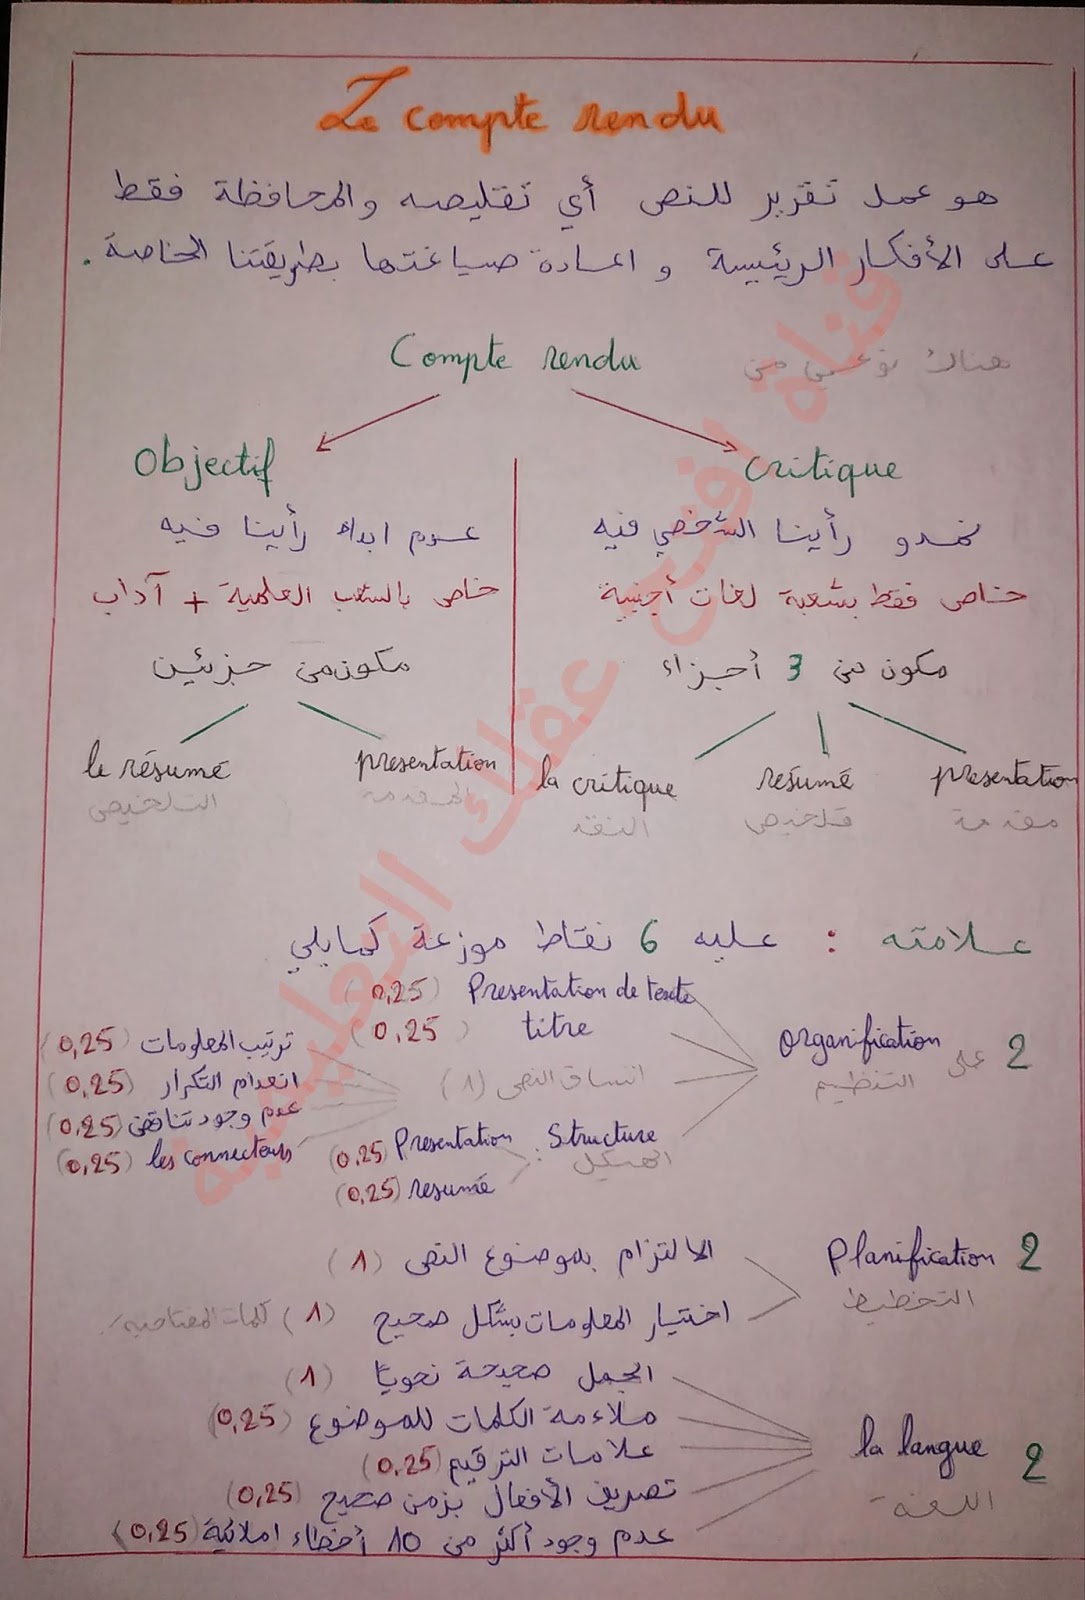 Le compte rendu
هو عمل تقرير للنص أي تقليصه والمحافظة فقط
على الأفكار الرئيسية و اعادة صياغتها بطريقتنا الخاصة.
Compte rendu
هناك نوعين من
Objectif
critique
عدم ابداء رأينا فيه
نبدو رأينا الشخصي فيه
خاص بالشعب العلمية + آداب
خاص فقط بشعبة لغات أجنبية
مكون من جزئين
مكون من 3 أجزاء
le résumé
presentation
la critique
resumé
presentation
التلخيص
المقدمة
النقد
تلخيص
مقدمة
علامته : عليه 6 نقاط موزعة كمايلي
2 على organification
التنظيم
Presentation de texte (0,25)
titre (0,25)
اتساق النص (1)
ترتيب المعلومات (0,25)
انعدام التكرار (0,25)
عدم وجود تناقض (0,25)
les connecteurs (0,25)
Structure :
الهيكل
Presentation (0,25)
resumé (0,25)
Planification 2
التخطيط
الالتزام بموضوع النص (1)
اختيار المعلومات بشكل صحيح (1) كلمات المفتاحية
la langue 2
اللغة
الجمل صحيحة نحويا (1)
ملاءمة الكلمات للموضوع (0,25)
علامات الترقيم (0,25)
تصريف الأفعال بزمن صحيح (0,25)
عدم وجود أكثر من 10 أخطاء املائية (0,25)
قناة افتح عقلك التعليمية